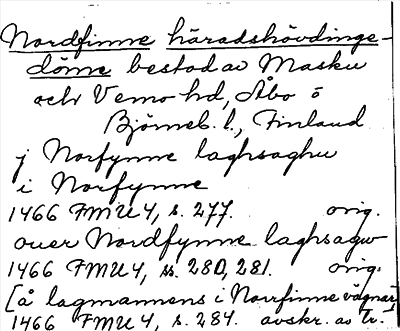 Nordfinne häradshövdinge-
döme bestod av Masku
och Vemo hd, Åbo o
Björneb. l., Finland
j Norfynne laghsaghu
i Norfynne
1466 FMU 4, s. 277. orig.
ouer Nordfynne laghsagw
1466 FMU 4, ss. 280, 281. orig.
[å lagmannens i Norrfinne vägnar
1466 FMU 4, s. 284. avskr. as tr.